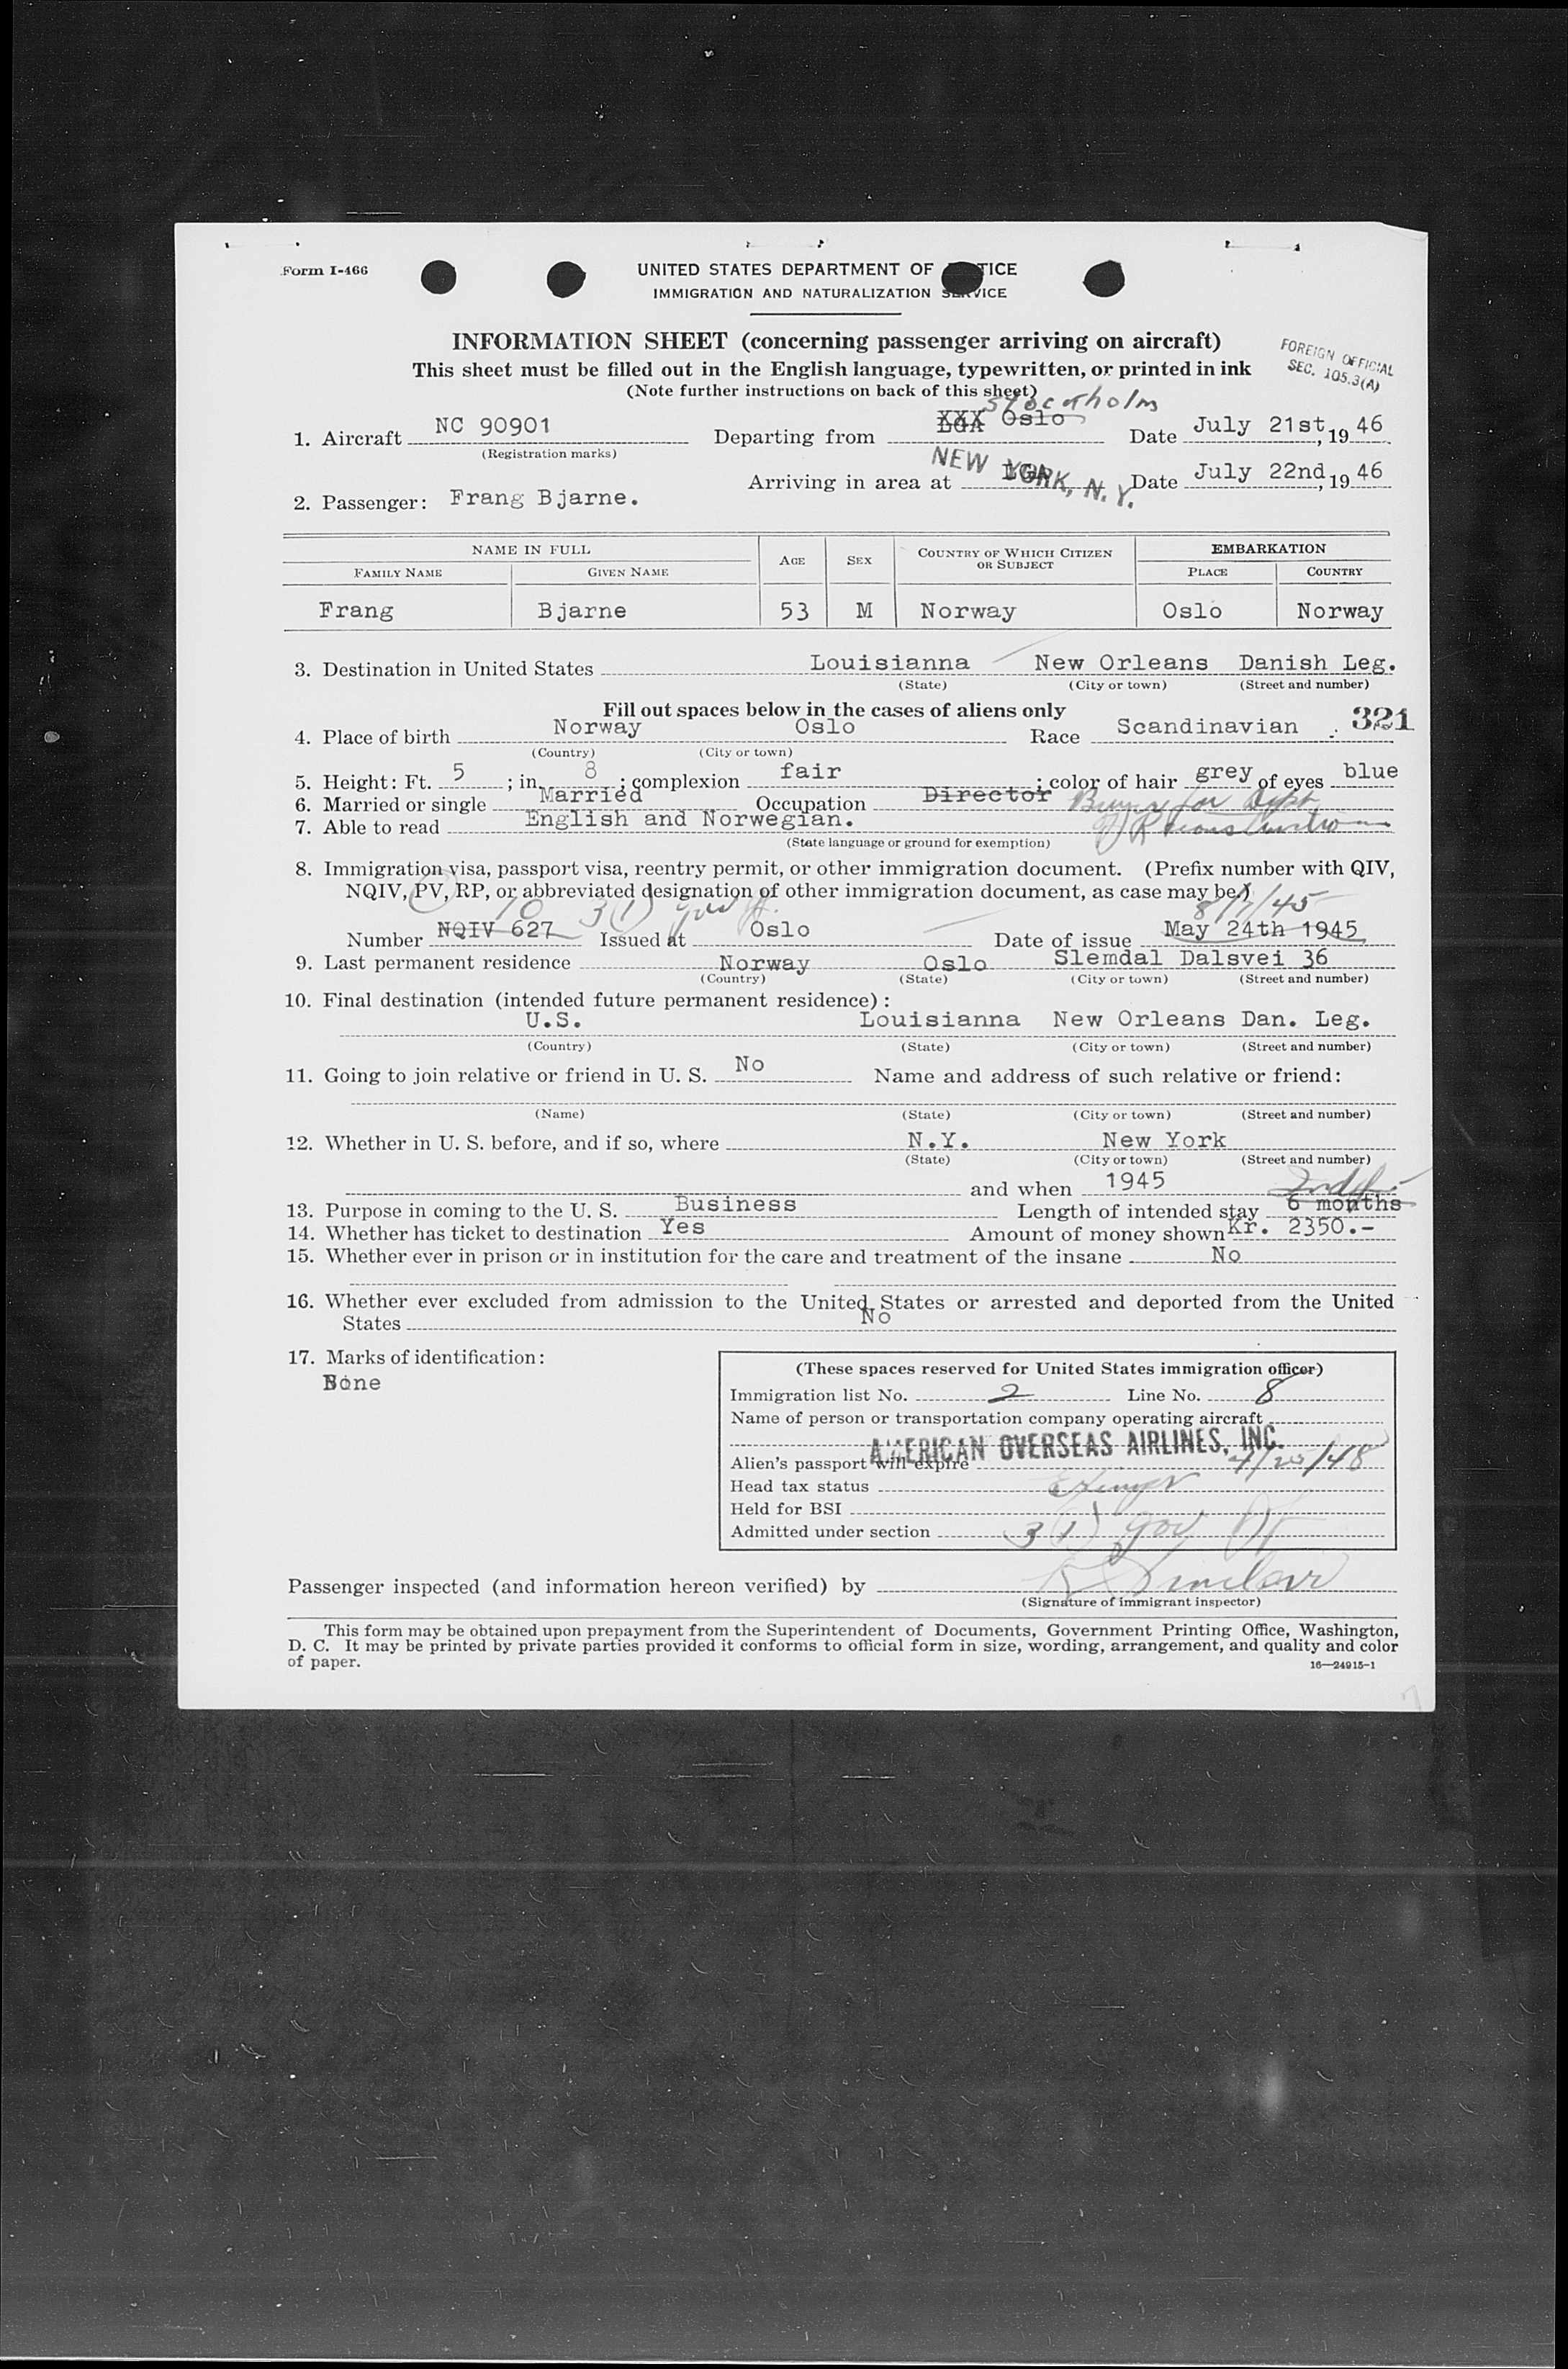 Form I-466
UNITED STATES DEPARTMENT OF JUSTICE
IMMIGRATION AND NATURALIZATION SERVICE
INFORMATION SHEET (concerning passenger arriving on aircraft)
This sheet must be filled out in the English language, typewritten, or printed in ink
(Note further instructions on back of this sheet)
FOREIGN OFFICIAL
SEC. 105.3(A)
Stockholm
1. Aircraft NC 90901 Departing from XXX Oslo Date July 21st, 1946
(Registration marks)
Arriving in area at NEW YORK, N.Y. Date July 22nd, 1946
2. Passenger: Frang Bjarne.
NAME IN FULL AGE SEX COUNTRY OF WHICH CITIZEN OR SUBJECT EMBARKATION
FAMILY NAME GIVEN NAME PLACE COUNTRY
Frang Bjarne 53 M Norway Oslo Norway
3. Destination in United States Louisianna New Orleans Danish Leg.
(State) (City or town) (Street and number)
Fill out spaces below in the cases of aliens only
321
4. Place of birth Norway Oslo Race Scandinavian
(Country) (City or town)
5. Height: Ft. 5; in. 8; complexion fair; color of hair grey of eyes blue
6. Married or single Married Occupation Director Buyer for Dept
7. Able to read English and Norwegian. of Reconstruction
(State language or ground for exemption)
8. Immigration visa, passport visa, reentry permit, or other immigration document. (Prefix number with QIV,
NQIV, PV, RP, or abbreviated designation of other immigration document, as case may be.)
10 3(1) gov 8/7/45
Number NQIV 627 Issued at Oslo Date of issue May 24th 1945
9. Last permanent residence Norway Oslo Slemdal Dalsvei 36
(Country) (State) (City or town) (Street and number)
10. Final destination (intended future permanent residence):
U.S. Louisianna New Orleans Dan. Leg.
(Country) (State) (City or town) (Street and number)
11. Going to join relative or friend in U. S. No Name and address of such relative or friend:
(Name) (State) (City or town) (Street and number)
12. Whether in U. S. before, and if so, where N.Y. New York
(State) (City or town) (Street and number)
and when 1945
13. Purpose in coming to the U. S. Business Length of intended stay 6 months
14. Whether has ticket to destination Yes Amount of money shown Kr. 2350.-
15. Whether ever in prison or in institution for the care and treatment of the insane No
16. Whether ever excluded from admission to the United States or arrested and deported from the United
States No
17. Marks of identification:
(These spaces reserved for United States immigration officer)
Immigration list No. 2 Line No. 8
Name of person or transportation company operating aircraft
AMERICAN OVERSEAS AIRLINES, INC.
Alien's passport will expire 4/25/48
Head tax status Exempt
Held for BSI
Admitted under section 3(1) gov
Passenger inspected (and information hereon verified) by Sinclair
(Signature of immigrant inspector)
This form may be obtained upon prepayment from the Superintendent of Documents, Government Printing Office, Washington,
D. C. It may be printed by private parties provided it conforms to official form in size, wording, arrangement, and quality and color
of paper.
16—24915-1